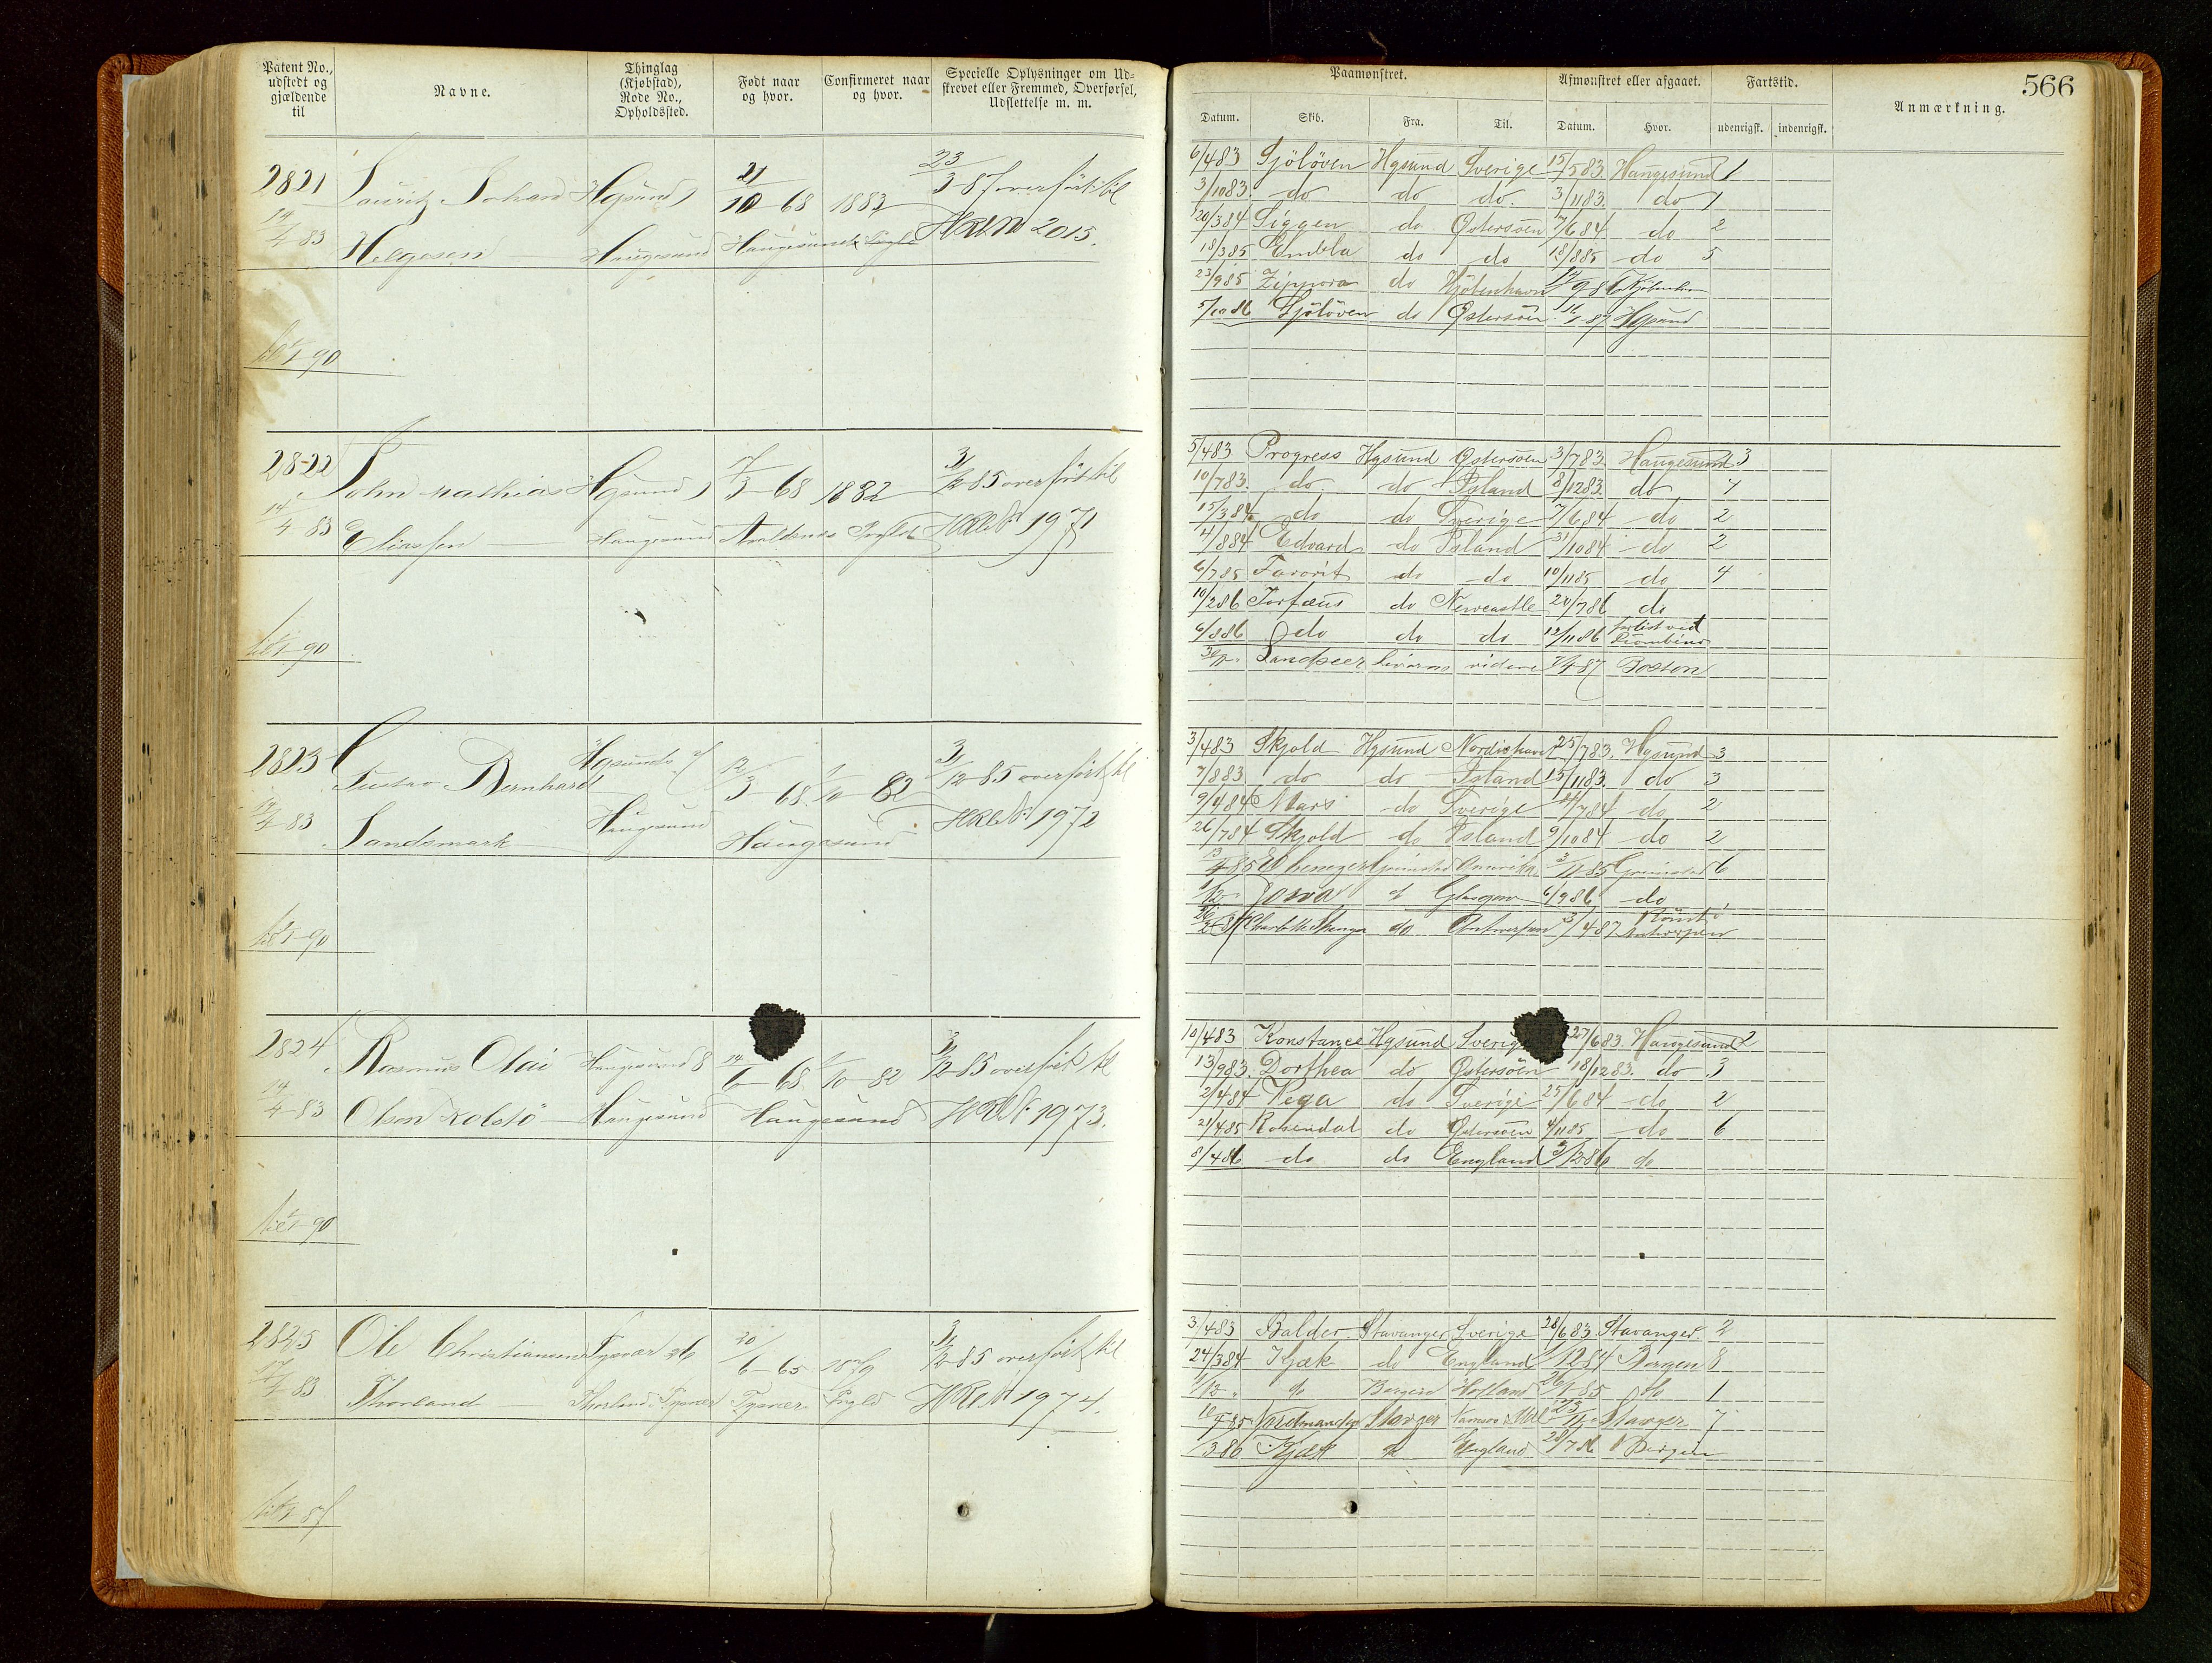 Patent No., udstedt og gjældende til
Navne.
Thinglag (Kjøbstad), Rode No., Opholdssted.
Født naar og hvor.
Confirmeret naar og hvor.
Specielle Oplysninger om Udskrevet eller Fremmed, Overførsel, Udslettelse m. m.
2821 Lauritz Johan Hgsund 1 21/10 68 1883 23/3 87 overført til
14/4 83 Helgesen Haugesund Haugesund HRN 2015.
til 1/1 90
2822 John Mathias Hgsund 17/3 68 1882 31/12 85 overført til
14/4 83 Eliassen Haugesund Avaldsnes 1971
til 1/1 90
2823 Gustav Bernhard Hgsund 12/3 68 1/10 82 31/12 85 overført til
14/4 83 Landsmark Haugesund Haugesund 1972
til 1/1 90
2824 Rasmus Olai Haugesund 8 14/6 68 1/10 82 31/12 85 overført til
14/4 83 Olsen Kolstö Haugesund Haugesund 1973.
til 1/1 90
2825 Ole Christiansen Tysvær 26 20/6 65 1879 31/12 85 overført til
17/4 83 Thorland Thorland Tysvær Tysvær 1974.
til 1/1 87
566
Paamønstret.
Afmønstret eller afgaaet.
Fartstid.
Anmærkning.
Datum. Skib. Fra. Til. Datum. Hvor. udenrigsk. indenrigsk.
6/4 83 Sjölöven Hgsund Sverige 15/5 83. Haugesund 1
3/10 83. do do do. 3/11 83. do 1
20/3 84 Siggen do Östersöen 7/6 84 do 2
18/3 85 Embla do do 18/8 85 do 5
23/9 85 Zippora do Kjöbenhavn
5/10 86 Sjölöven do Östersöen 87 Hgsund
5/4 83 Progress Hgsund Östersöen 3/7 83 Haugesund 3
10/7 83. do do Island 8/12 83. do 4
15/3 84 do do Sverige 7/6 84 do 2
4/8 84 Edvard do Island 31/10 84 do 2
6/7 85 Favorit do do 10/11 85 do 4
10/2 86 Torfæus do Newcastle 20/7 86 do
6/8 86 do do do 12/11 86 forlist ved
Landseer Livorno videre 87 Boston
3/4 83 Skjold Hgsund Nordishavet 25/7 83. Hgsund 3
7/8 83 do do Island 15/11 83. do 3
9/4 84 Mars do Sverige 7 84 do 2
26/7 84 Skjold do Island 9/10 84 do 2
13/4 85 Ebenezer Grimstad Amerika 3/11 85 Grimstad 6
Glasgow 6/9 86 do
do Antwerpen 4 87 Antwerpen
10/4 83 Konstance Hgsund Sverige 27/6 83. Haugesund 2
13/9 83. Dorthea do Östersöen 18/12 83. do 3
2/4 84 Vega do Sverige 25/6 84 do 2
21/4 85 Rosendal do Östersöen 4/11 85 do 6
8/4 86 do do England 3/12 86 do
3/4 83 Balder. Stavanger Sverige 28/6 83. Stavanger. 2
24/3 84 Kjæk do England 1/12 84 Bergen 8
1/12 " do Bergen 26/1 85 do 1
Stavger 23/11 Stavger 7
3 86 Kjæk do England 28/7 86 Bergen